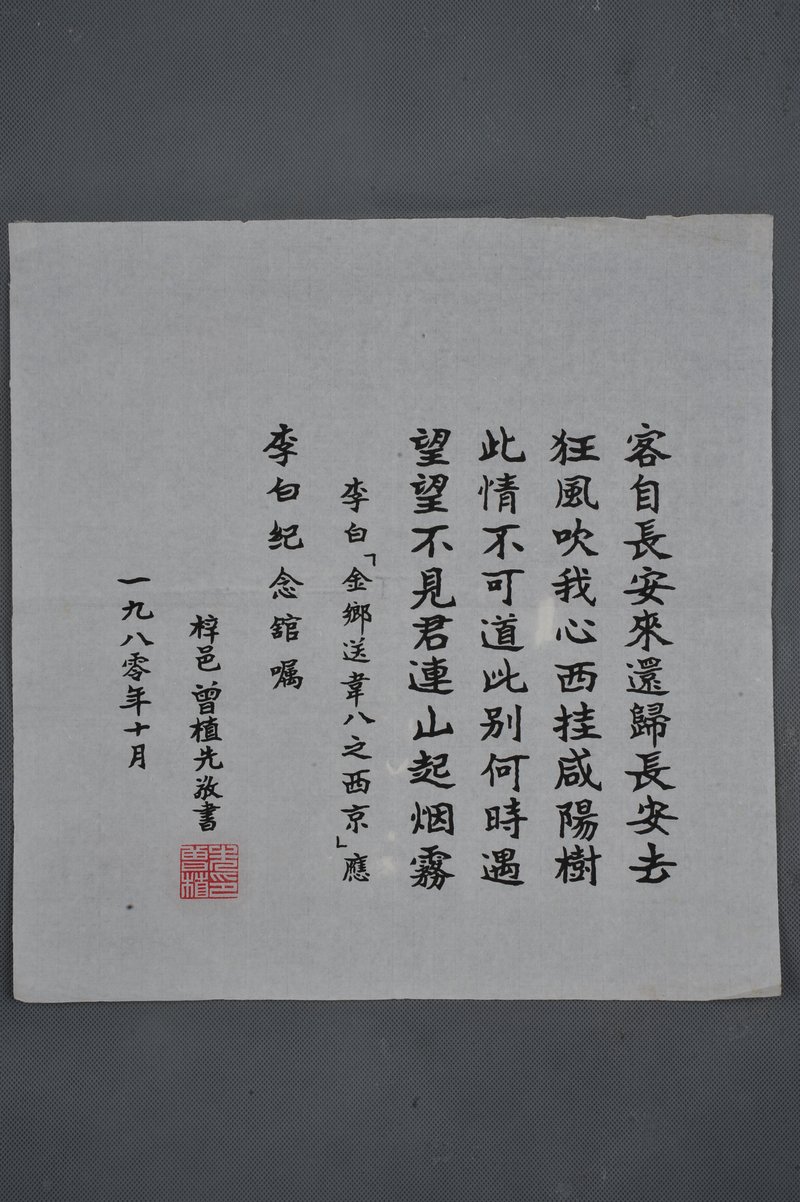 客自長安來還歸長安去
狂風吹我心西挂咸陽樹
此情不可道此别何時遇
望望不見君連山起烟霧
李白「金鄉送韋八之西京」應
李白纪念舘嘱
梓邑曾植先敬書
一九八零年十月